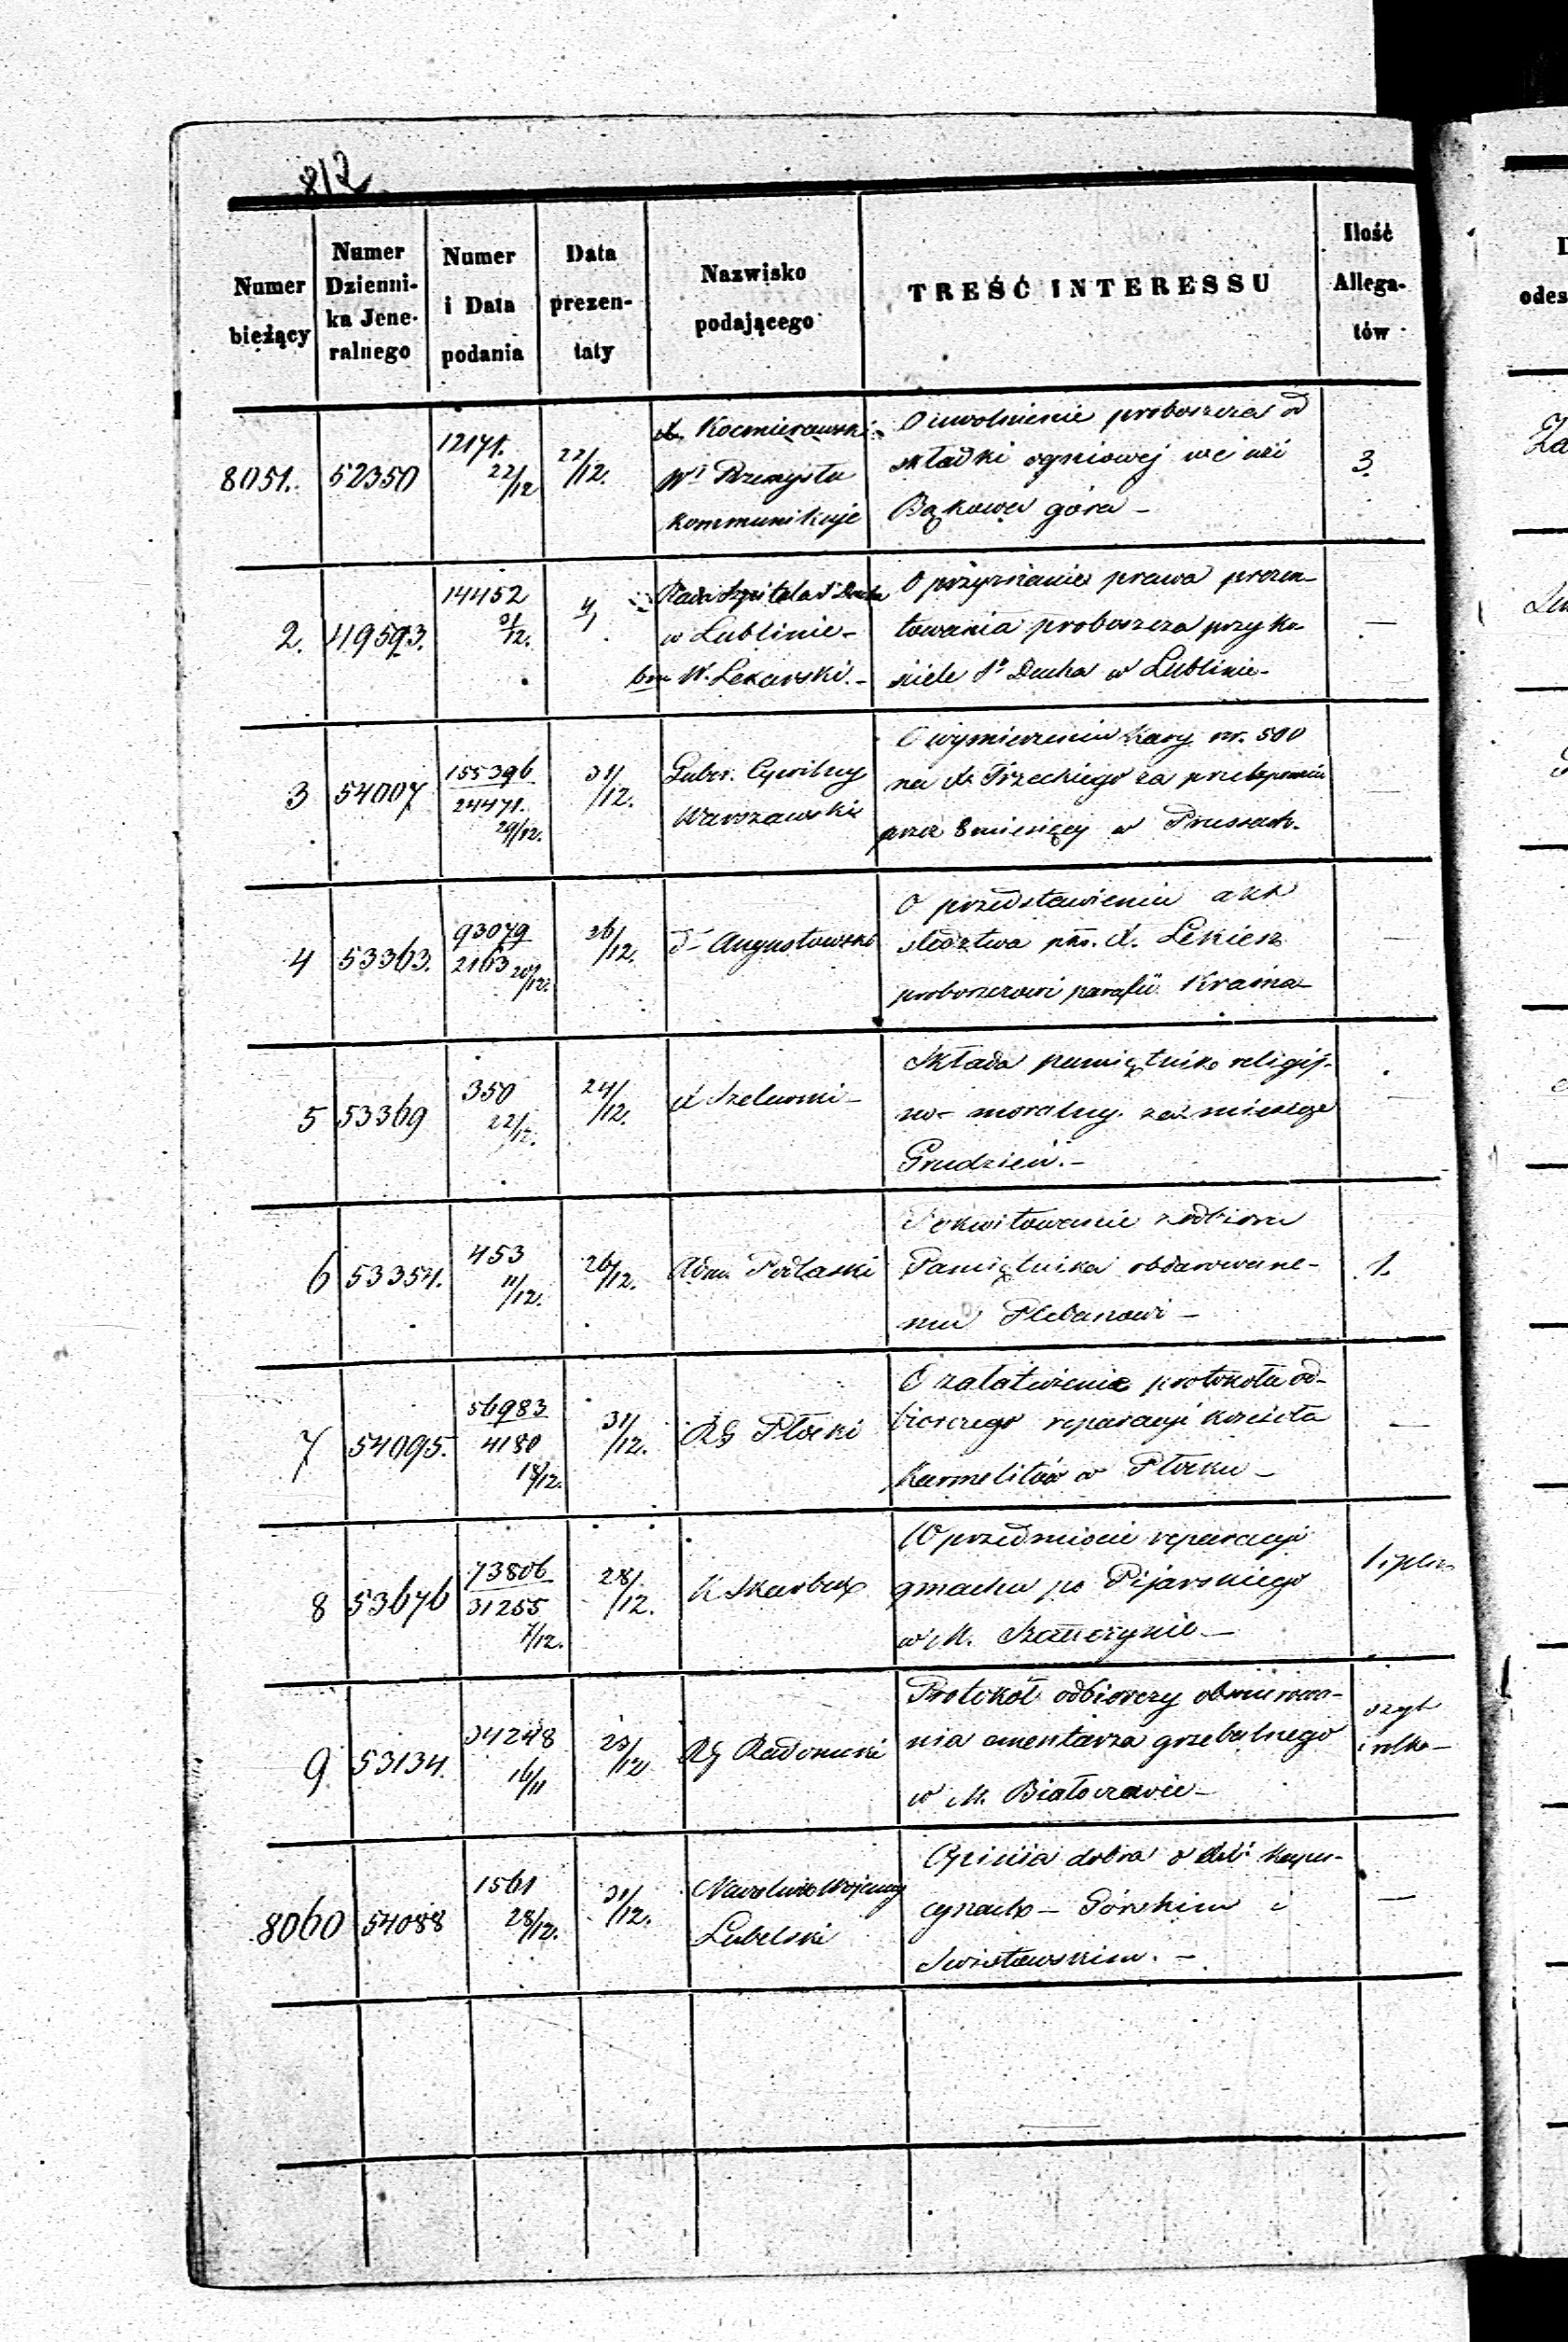 812
Numer bieżący | Numer Dzienni- ka Jene- ralnego | Numer i Data podania | Data prezen- taty | Nazwisko podającego | TREŚĆ INTERESSU | Ilość Allega- tów
8051. | 52350 | 12171. 22/12 | 22/12. | X. Kocmierowski | O uwolnienie proboszcza od
Przemysłu | składki ogniowej we wsi | 3.
kommunikuje | Bąkowa góra –
2. | 49593. | 14452 31/12. | 4/1 | Rada Szpitala S. Ducha | O przyznanie prawa prezen-
w Lublinie – | towania proboszcza przy ko- | —
W. Lexawski. – | ściele Sgo Ducha w Lublinie –
3 | 54007 | 155396 24471. 29/12. | 31/12. | Guber. Cywilny | O wymierzeniu kary zr. 500
Warszawski | na X. Trzeckiego za
przez 8 miesięcy w Prussach.
4 | 53363. | 93079 2163 20/12. | 26/12. | Augustowski | O przedstawieniu akt
śledztwa pko. X. | —
proboszczowi parafii Krasna –
5 | 53369 | 350 22/12. | 24/12. | X | Składa pamiętnik religij-
no – moralny za miesiąc | —
Grudzień. –
6 | 53354. | 453 11/12. | 26/12. | Adm. Podlaski | Pokwitowanie z odbioru
Pamiętnika obdarowane- | 1.
mu Plebanowi –
7 | 54095. | 56983 4180 18/12. | 31/12. | RG Płocki | O załatwienie protokołu od-
biorczego reparacyi kościoła | —
Karmelitów w Płocku –
8 | 53676 | 73806 31255 7/12. | 28/12. | K Skarbu | W przedmiocie reparacyi
gmachu po Pijarskiego | 1
w M. Szczuczynie –
9 | 53134. | 34248 16/11 | 23/12 | RG Radomski | Protokół odbiorczy obmurowa- | szyt
nia cmentarza grzebalnego
w M. Białaczowie –
8060 | 54088 | 1561 28/12. | 31/12. | Naczelnik Wojenny | Opinija dobra o kapu-
Lubelski | cynach – Górskim i | —
Swisławskim. –